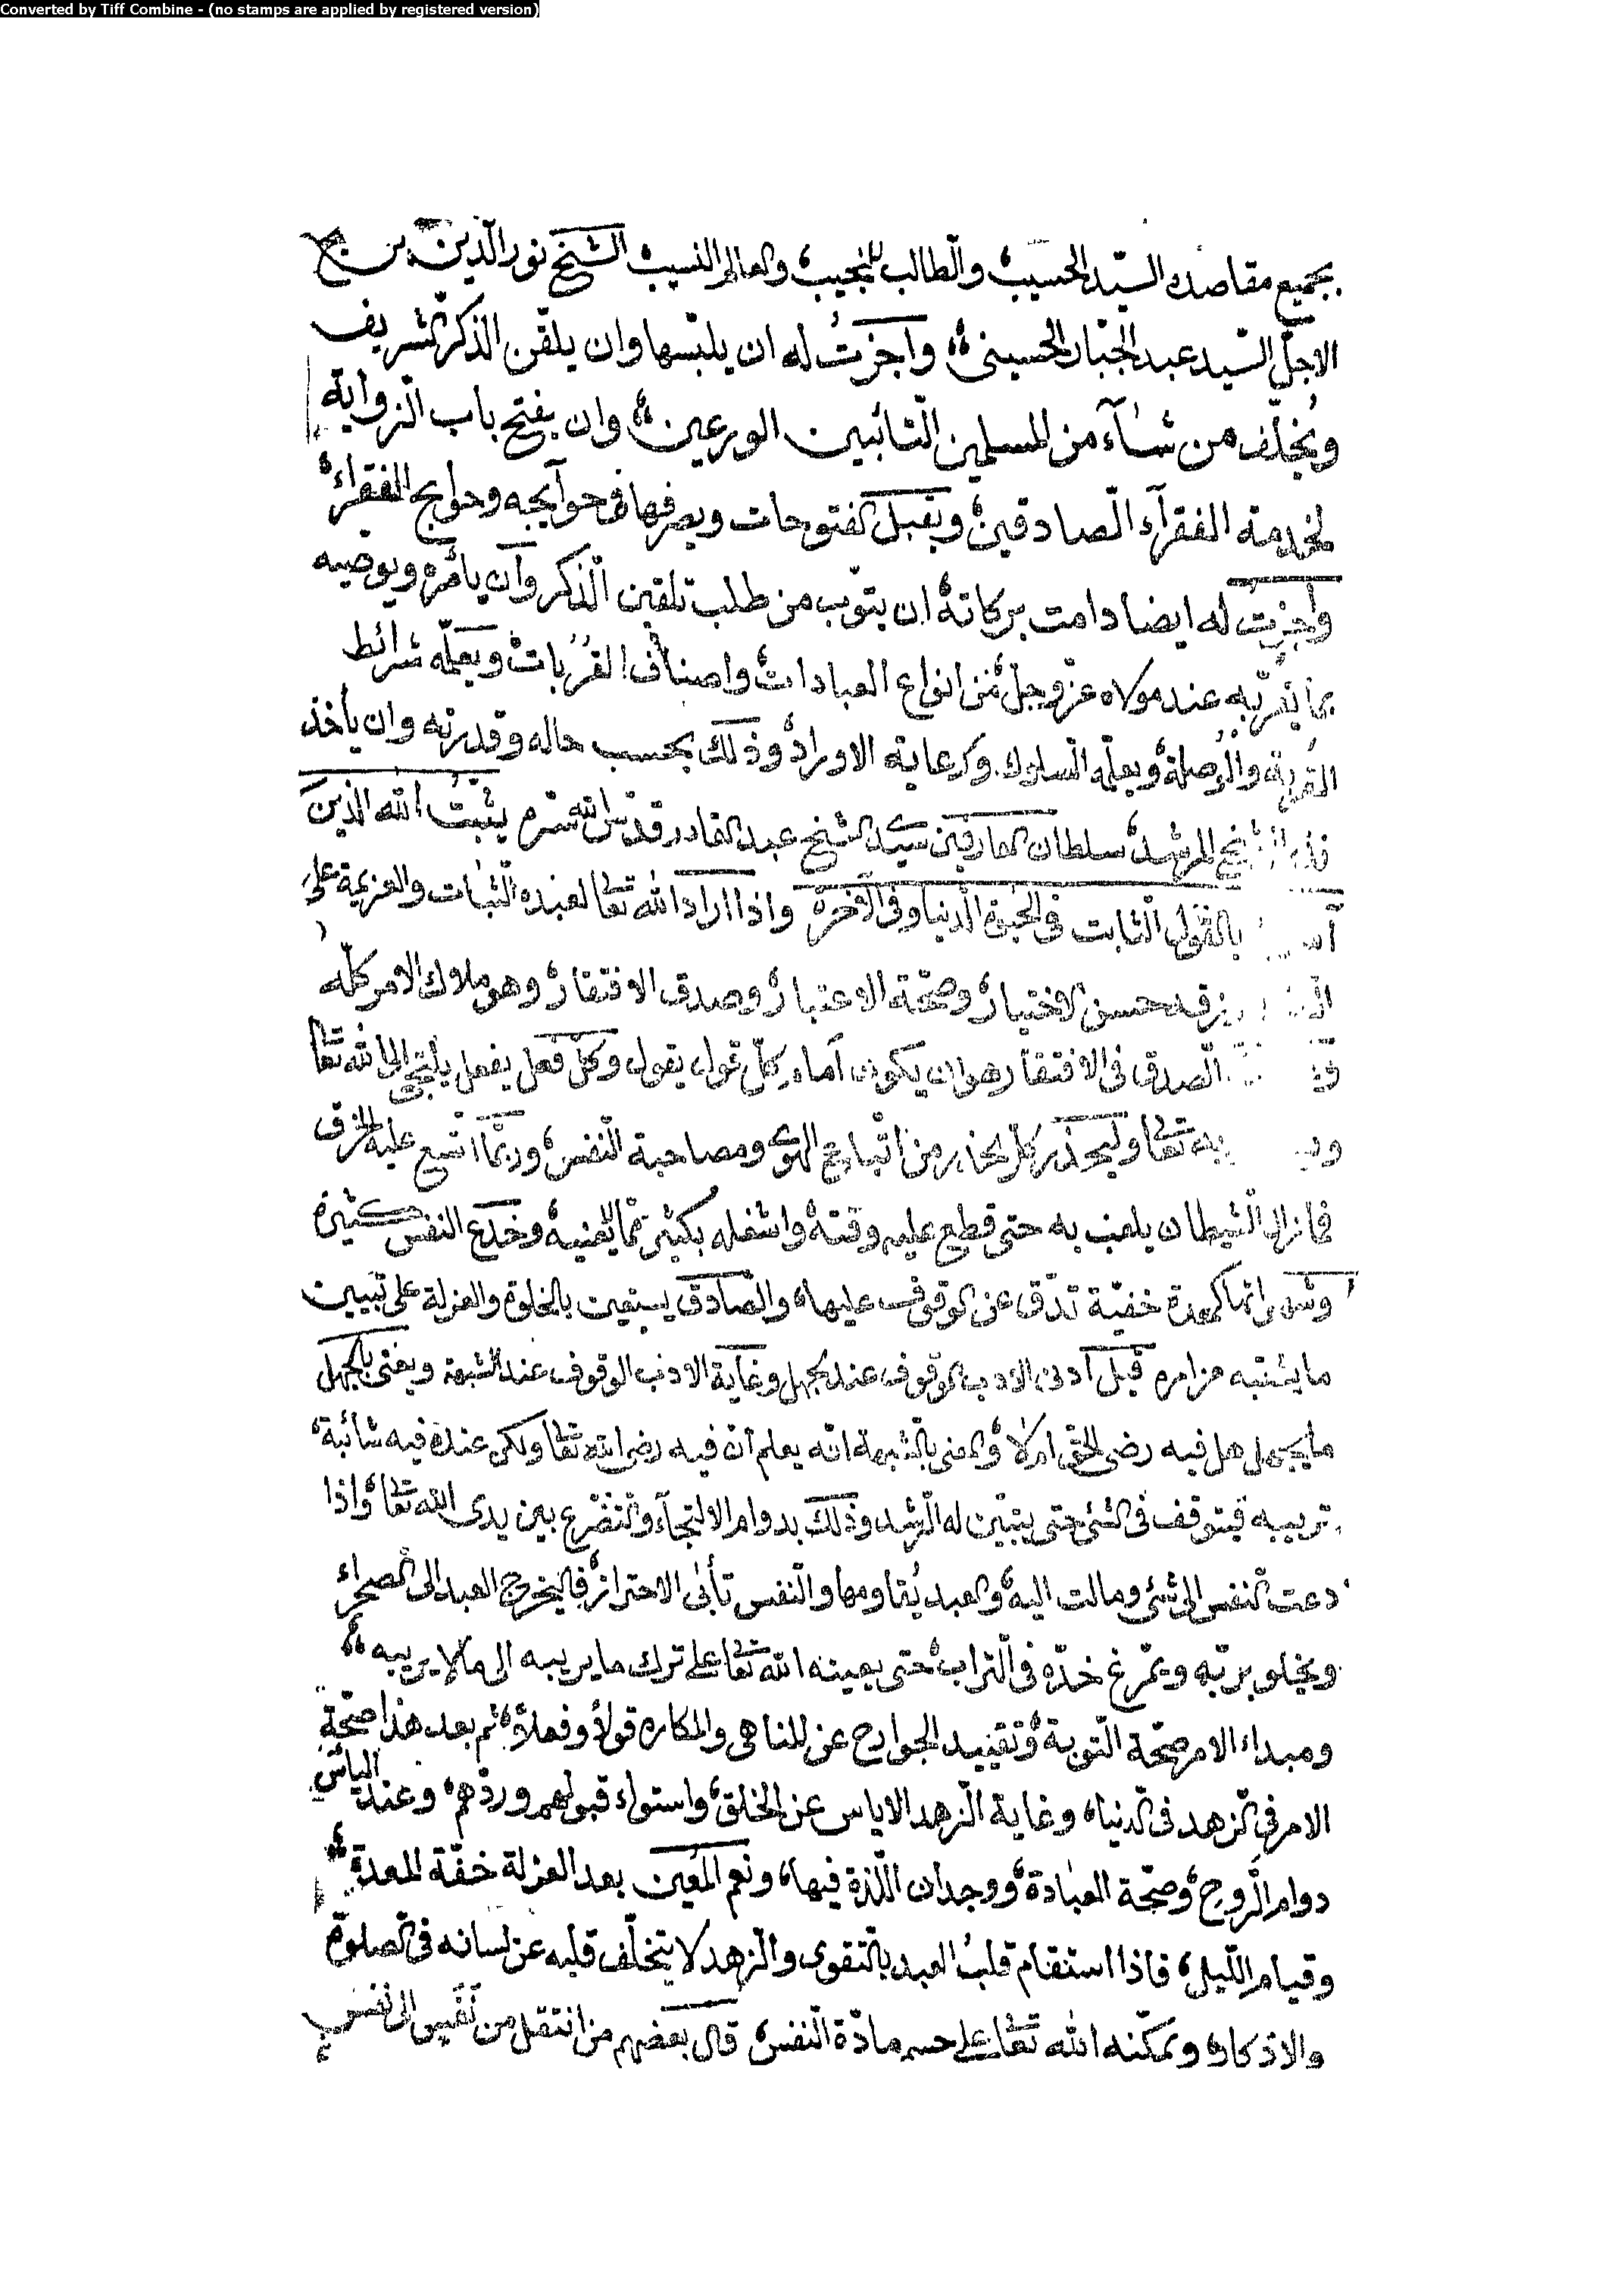 Converted by Tiff Combine - (no stamps are applied by registered version)
بجميع مقاصده السيّد الحسيب والطالب النجيب والعالم النسيب الشيخ نور الدّين بن
الاجلّ السّيد عبد الجبّار الحسينى واجزتُ له ان يلبّسها وان يلقّن الذكر الشريف
ويُخلّف من شآء من المسلمين التّائبين الورعين وان يفتح باب الزواية
لخدمة الفقرآء الصّادقين ويقبل الفتوحات ويصرفها فى حوآيجه وحوايج الفقراء
واجزت له ايضا دامت بركاته ان يتوّب من طلب تلقين الذّكر وان يأمره ويوصيه
بما يقرّبه عند مولاه عزّ وجلّ من انواع العبادات واصناف القُرُبات ويعلّمه شرائط
القربة والوُصلة ويعلّمه السلوك وكرعاية الاوراد وذلك بحسب حاله وقدرته وان يأخذ
المرشد سلطان العارفين سيّد الشيخ عبد القادر قدّس الله سّره يثبّتُ الله الّذين
بالقول الثّابت فى الحيوة الدّنيا وفى الآخرة واذا اراد الله تعا لعبده الثّبات والعزيمة على
يرزقه حسن الاختيار وصحّة الاعتبار وصدق الافتقار وهو ملاك الامر كلّه
الصدق فى الافتقار هو ان يكون امام كلّ قول يقول وكلّ فعل يفعل يلتجئ الى الله تعا
تعا وليحذر كلّ الحذر من اتّباع الهوى ومصاحبة النّفس وربّما اتّسع عليه الخرق
فما زال الشّيطان يلعب به حتى قطع عليه وقته واشغله بكثير ممّا لايعنيه وخدع النفس كثيرة
خفيّة تدقّ عن الوقوف عليها والصّادق يستعين بالخلوة والعزلة على تبيين
ما يشتبه من امره قيل ادنى الادب الوقوف عند الجهل وغاية الادب الوقوف عند الشبهة ويعنى بالجهل
ما يجهل هل فيه رضى الحق ام لا والمعنى بالشّبهة انّه يعلم انّ فيه رضى الله تعا ولكن عنده فيه شائبة
تريبه فيتوقف فى الشئ حتى يتبيّن له الرّشد وذلك بدوام الالتجآء والتّضرّع بين يدى الله تعا واذا
دعت النّفس الى شئ ومالت اليه والعبد يُقاومها والنّفس تأبى الاحتراز فاليخرج العبد الى الصحراء
ويخلو بربّه ويمرّغ خدّه فى التّراب حتى يعينه الله تعا على ترك ما يريبه الى ما لا يريبه
ومبداء الامر صحّة التّوبة وتقييد الجوارح عن المناهى والمكاره قولاً وفعلاً ثم بعد هذا صحّة
الامر فى الزهد فى الدّنيا وغاية الزّهد الاياس عن الخلق واستواء قبولهم وردّهم وعند الياس
دوام الرّوح وصحّة العبادة ووجدان اللّذة فيها ونعم المُعين بعد العزلة خفّة المعدة
وقيام اللّيل فاذا استقام قلبُ العبد بالتّقوى والزّهد لا يتخلّف قلبه عن لسانه فى الصّلوة
والاذكار ويمكّنه الله تعا على حسم مادّة النّفس قال بعضهم من انتقل من نَفَسٍ الى نفسٍ